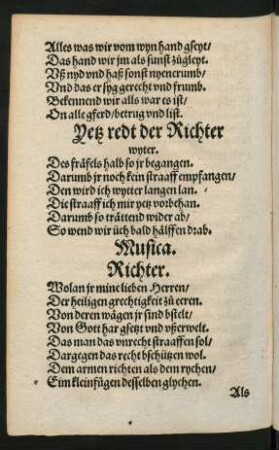 Alles was wir vom wyn hand gseyt/
Das hand wir jm als sunst zůgleyt.
Uß nyd vnd haß sonst nyenerumb/
Vnd das er syg gerecht vnd frumb.
Bekennend wir alls war es ist/
On alle gferd/ betrug vnd list.
Yetz redt der Richter
wyter.
Des fräfels halb so jr begangen.
Darumb jr noch kein straaff empfangen/
Den wird ich wytter langen lan.
Die straaff ich mir yetz vorbehan.
Darumb so trättend wider ab/
So wend wir üch bald hälffen drab.
Musica.
Richter.
Wolan jr mine lieben Herren/
Der heiligen grechtigkeit zů eeren.
Von deren wägen jr sind bstelt/
Von Gott har gsetzt vnd vßerwelt.
Das man das vnrecht straaffen sol/
Dargegen das recht bschützen wol.
Dem armen richten als dem rychen/
Eim kleinfügen desselben glychen.
Als